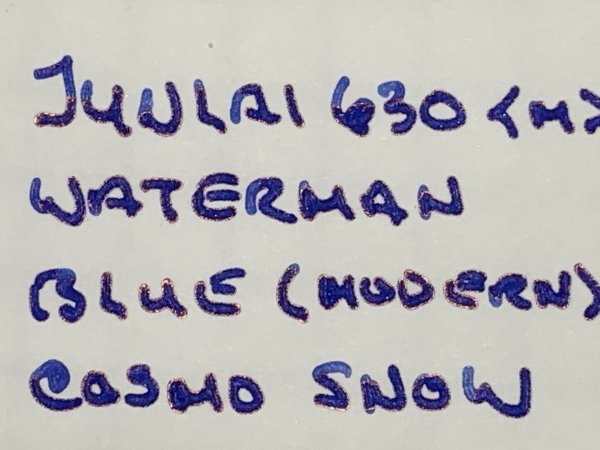 JUNLAI 630 <M>
WATERMAN
BLUE (MODERN)
COSMO SNOW